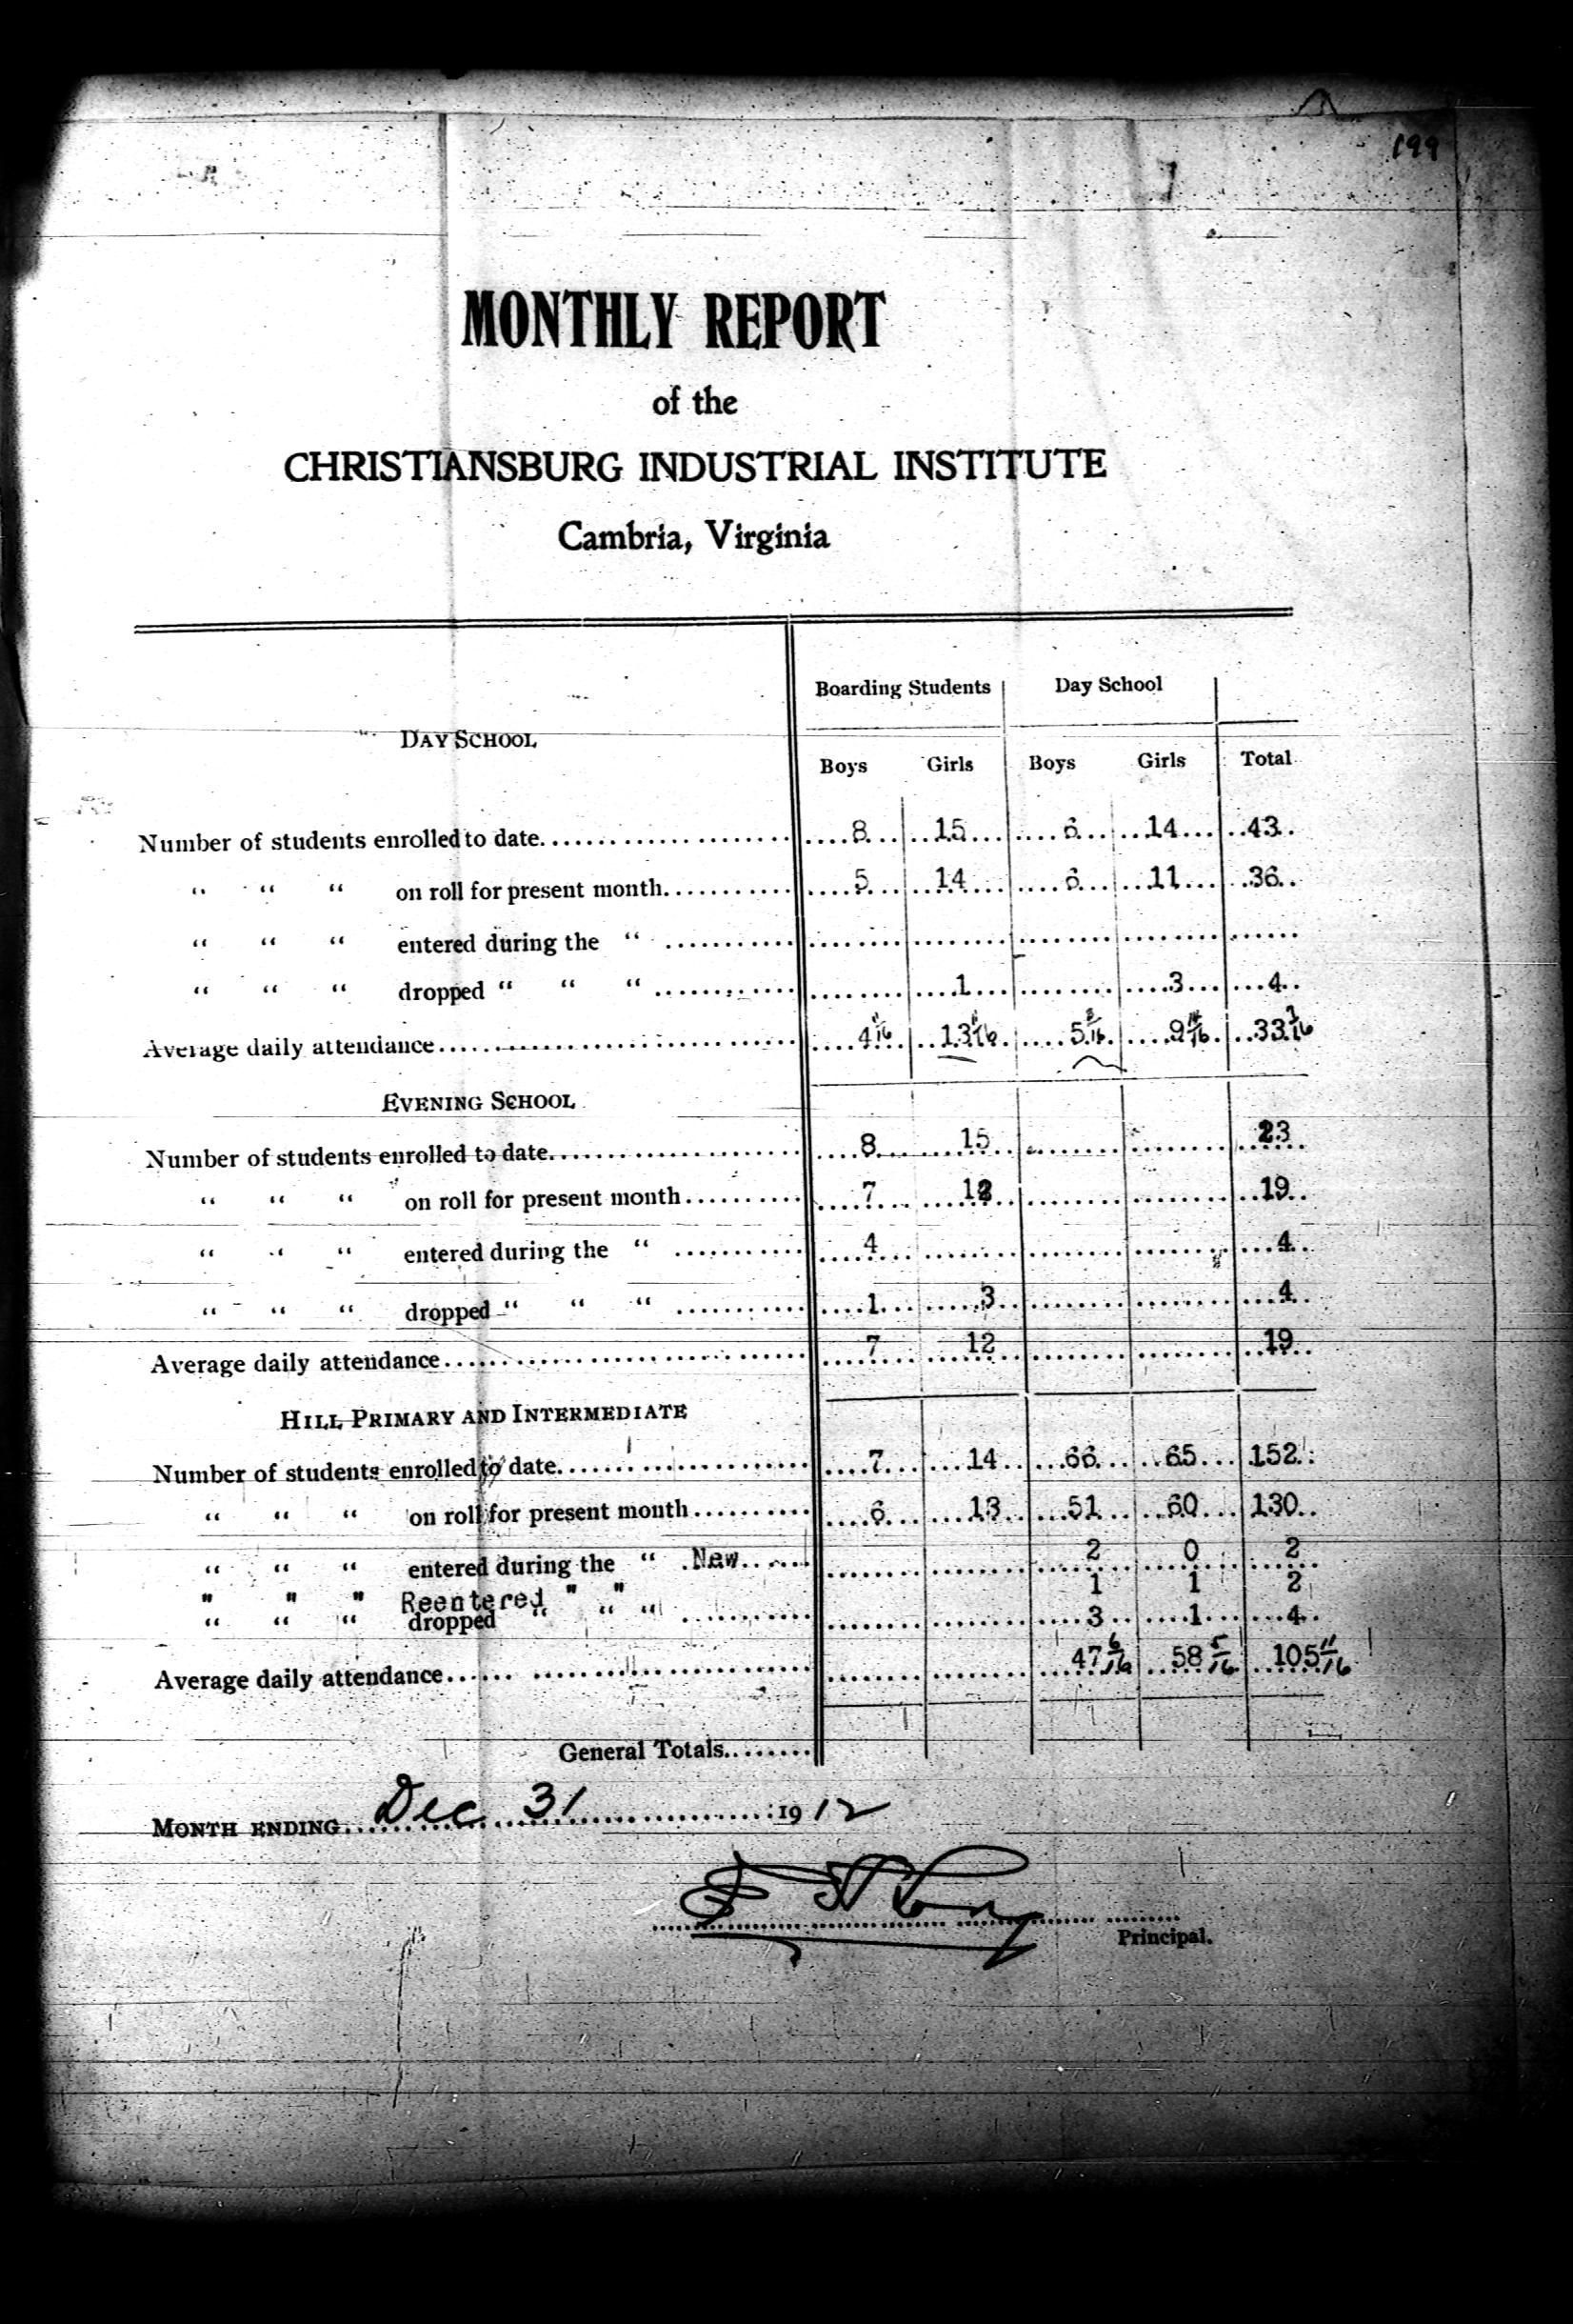 199
MONTHLY REPORT
of the
CHRISTIANSBURG INDUSTRIAL INSTITUTE
Cambria, Virginia
Boarding Students Day School
DAY SCHOOL
Boys Girls Boys Girls Total
Number of students enrolled to date 8 15 6 14 43
" " " on roll for present month 5 14 6 11 36
" " " entered during the "
" " " dropped " " " 1 3 4
Average daily attendance 4 /16 13 /16 5 /16 9 /16 33 /16
EVENING SCHOOL
Number of students enrolled to date 8 15 23
" " " on roll for present month 7 12 19
" " " entered during the " 4 4
" " " dropped " " " 1 3 4
Average daily attendance 7 12 19
HILL PRIMARY AND INTERMEDIATE
Number of students enrolled to date 7 14 66 65 152
" " " on roll for present month 6 13 51 60 130
" " " entered during the " New 2 0 2
" " " Reentered " " 1 1 2
" " " dropped " " " 3 1 4
Average daily attendance 47 6/16 58 5/16 105 11/16
General Totals
MONTH ENDING Dec 31 1912
Principal.